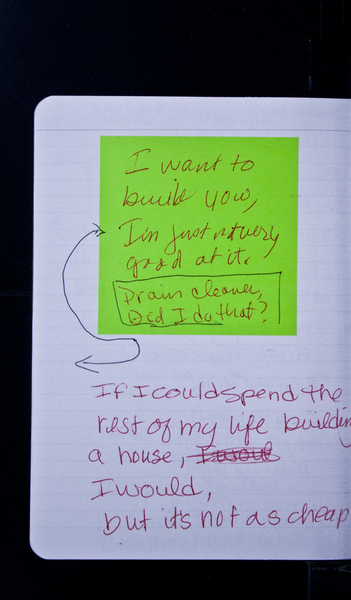 I want to
build you,
I'm just not very
good at it.
Drain cleaner,
Did I do that?
If I could spend the
rest of my life building
a house, I woul
I would,
but it's not as cheap